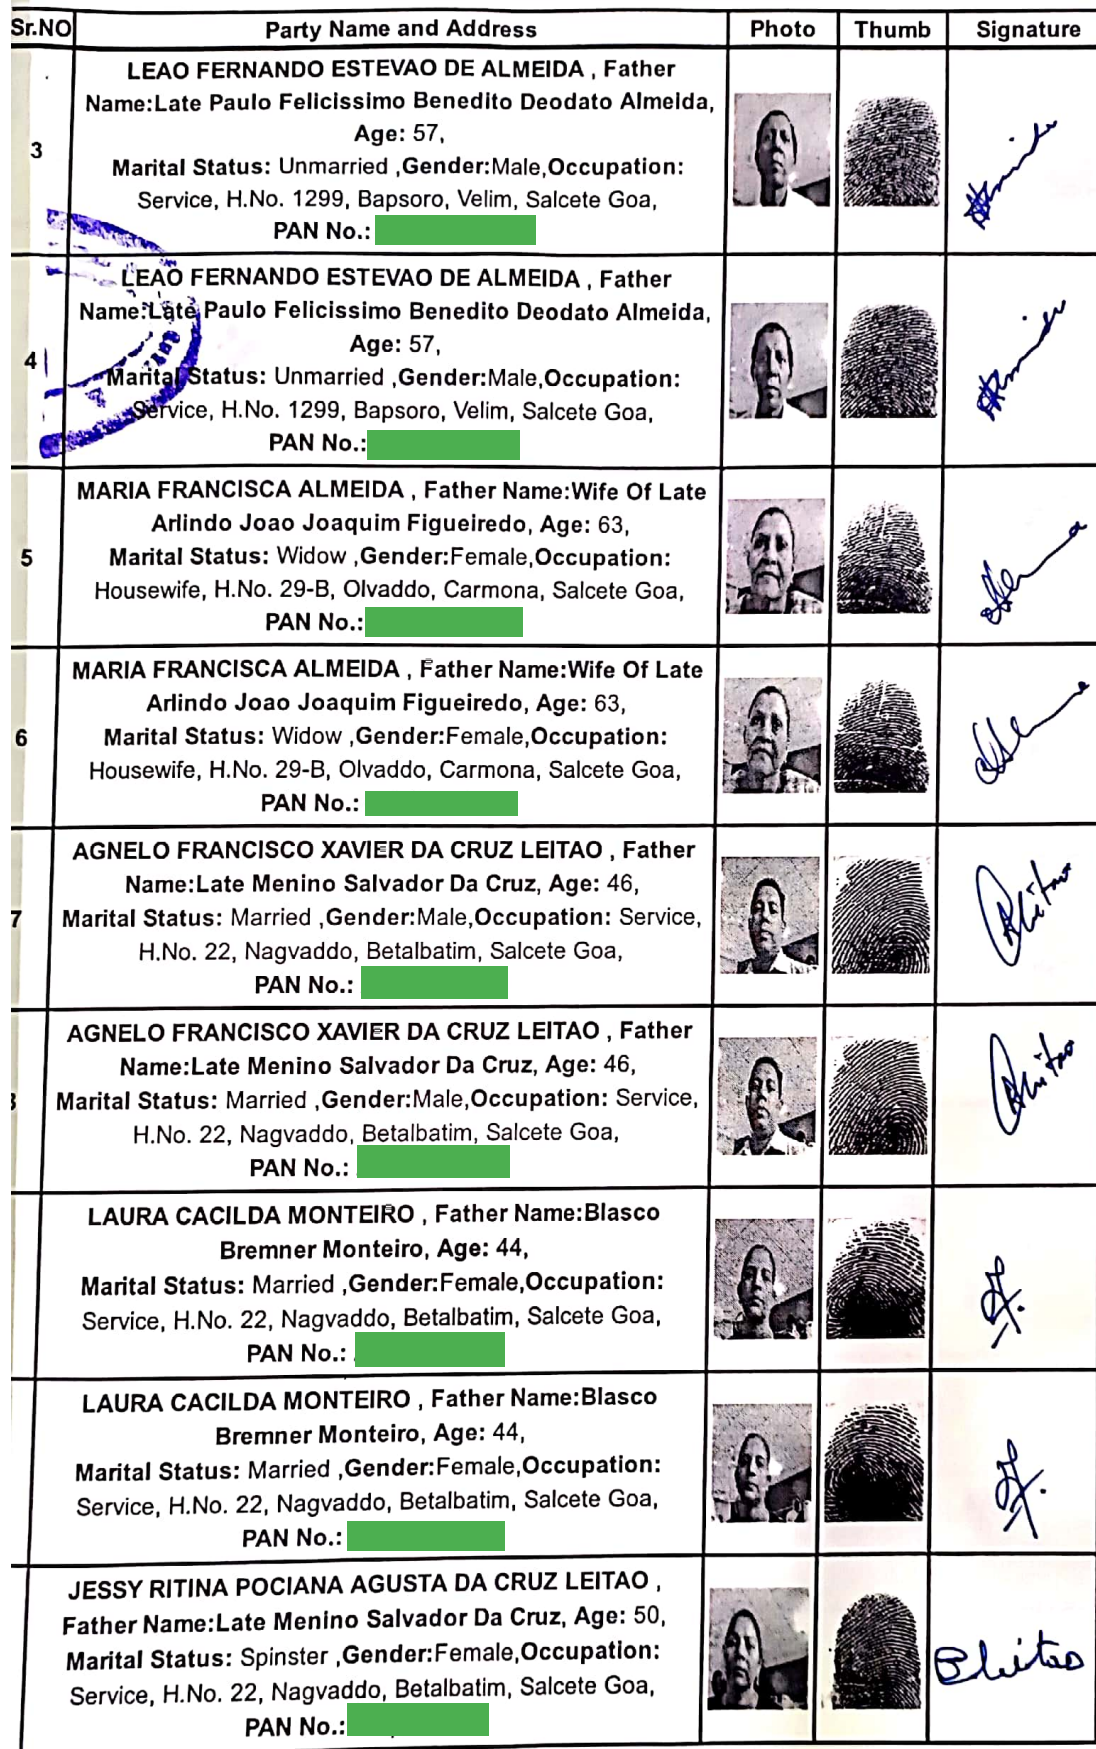 Sr.NO Party Name and Address Photo Thumb Signature
3
LEAO FERNANDO ESTEVAO DE ALMEIDA , Father
Name:Late Paulo Felicissimo Benedito Deodato Almeida,
Age: 57,
Marital Status: Unmarried ,Gender:Male,Occupation:
Service, H.No. 1299, Bapsoro, Velim, Salcete Goa,
PAN No.:
4
LEAO FERNANDO ESTEVAO DE ALMEIDA , Father
Name:Late Paulo Felicissimo Benedito Deodato Almeida,
Age: 57,
Marital Status: Unmarried ,Gender:Male,Occupation:
Service, H.No. 1299, Bapsoro, Velim, Salcete Goa,
PAN No.:
5
MARIA FRANCISCA ALMEIDA , Father Name:Wife Of Late
Arlindo Joao Joaquim Figueiredo, Age: 63,
Marital Status: Widow ,Gender:Female,Occupation:
Housewife, H.No. 29-B, Olvaddo, Carmona, Salcete Goa,
PAN No.:
6
MARIA FRANCISCA ALMEIDA , Father Name:Wife Of Late
Arlindo Joao Joaquim Figueiredo, Age: 63,
Marital Status: Widow ,Gender:Female,Occupation:
Housewife, H.No. 29-B, Olvaddo, Carmona, Salcete Goa,
PAN No.:
7
AGNELO FRANCISCO XAVIER DA CRUZ LEITAO , Father
Name:Late Menino Salvador Da Cruz, Age: 46,
Marital Status: Married ,Gender:Male,Occupation: Service,
H.No. 22, Nagvaddo, Betalbatim, Salcete Goa,
PAN No.:
AGNELO FRANCISCO XAVIER DA CRUZ LEITAO , Father
Name:Late Menino Salvador Da Cruz, Age: 46,
Marital Status: Married ,Gender:Male,Occupation: Service,
H.No. 22, Nagvaddo, Betalbatim, Salcete Goa,
PAN No.:
LAURA CACILDA MONTEIRO , Father Name:Blasco
Bremner Monteiro, Age: 44,
Marital Status: Married ,Gender:Female,Occupation:
Service, H.No. 22, Nagvaddo, Betalbatim, Salcete Goa,
PAN No.:
LAURA CACILDA MONTEIRO , Father Name:Blasco
Bremner Monteiro, Age: 44,
Marital Status: Married ,Gender:Female,Occupation:
Service, H.No. 22, Nagvaddo, Betalbatim, Salcete Goa,
PAN No.:
JESSY RITINA POCIANA AGUSTA DA CRUZ LEITAO ,
Father Name:Late Menino Salvador Da Cruz, Age: 50,
Marital Status: Spinster ,Gender:Female,Occupation:
Service, H.No. 22, Nagvaddo, Betalbatim, Salcete Goa,
PAN No.: